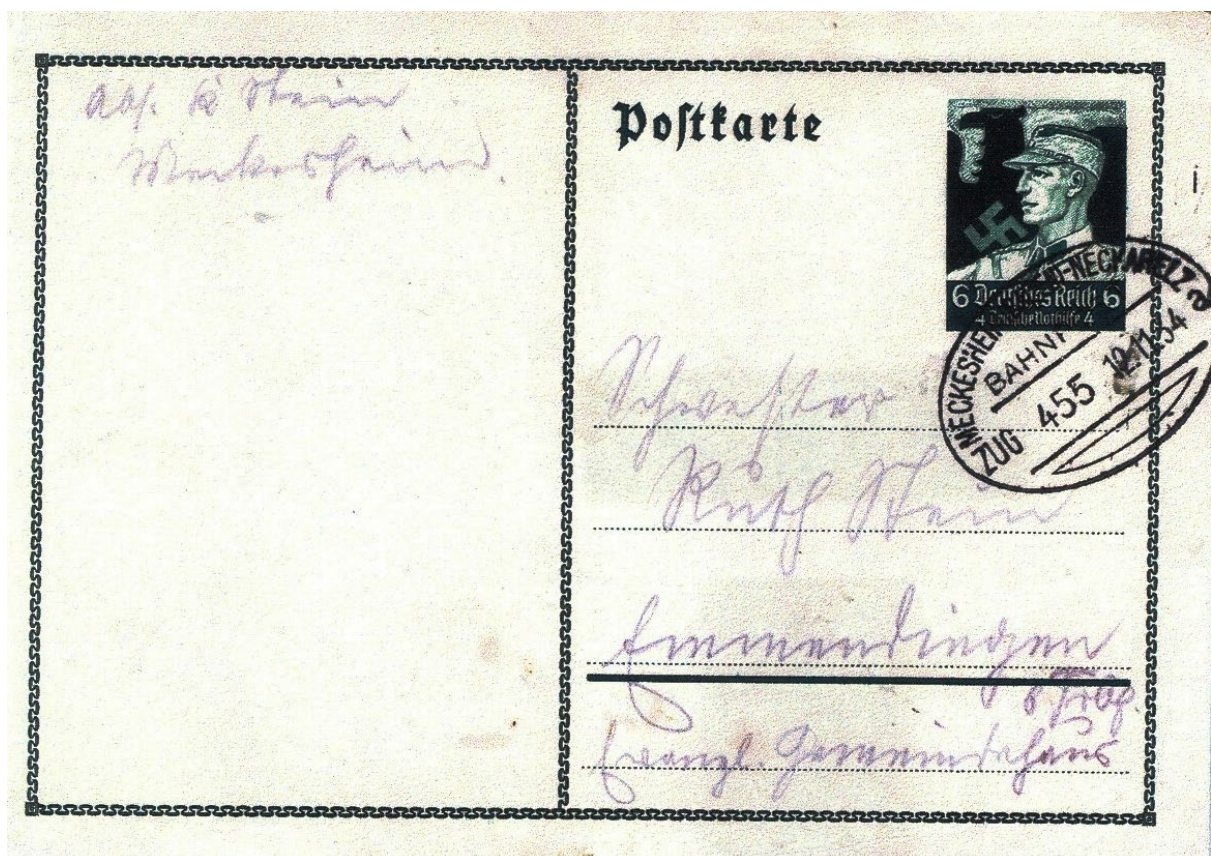 Abs. K Stein
Meckesheim.
Postkarte
6 Deutsches Reich 6
4 Deutsche Nothilfe 4
MECKESHEIM-NECKARELZ a
BAHNP
ZUG 455 12.11.34
Schwester
Ruth Stein
Emmendingen
Evangl. Gemeindehaus